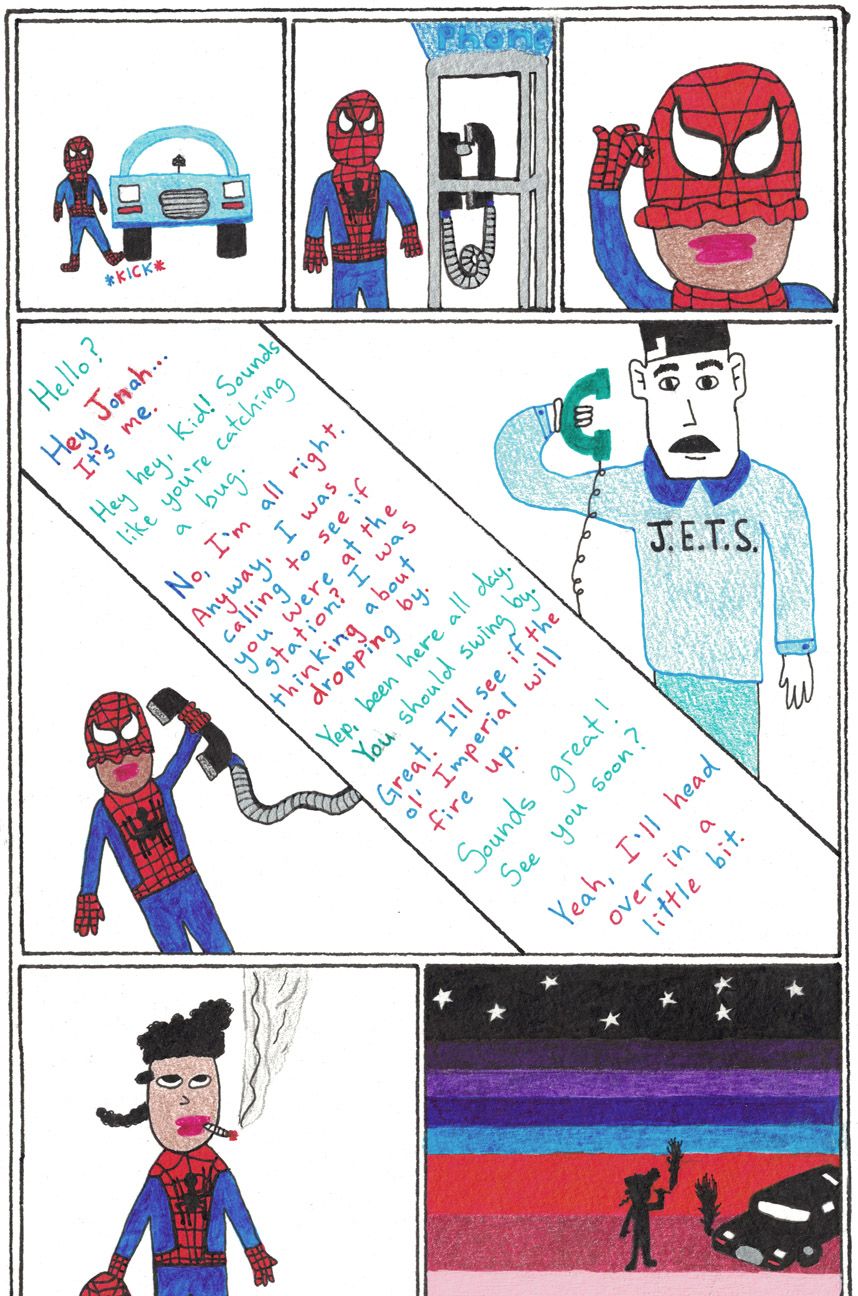 *KICK*
Phone
Hello?
Hey Jonah...
It's me.
Hey hey, kid! Sounds
like you're catching
a bug.
No, I'm all right.
Anyway, I was
calling to see if
you were at the
station? I was
thinking about
dropping by.
Yep, been here all day.
You should swing by.
Great. I'll see if the
ol' Imperial will
fire up.
Sounds great!
See you soon?
Yeah, I'll head
over in a
little bit.
J.E.T.S.